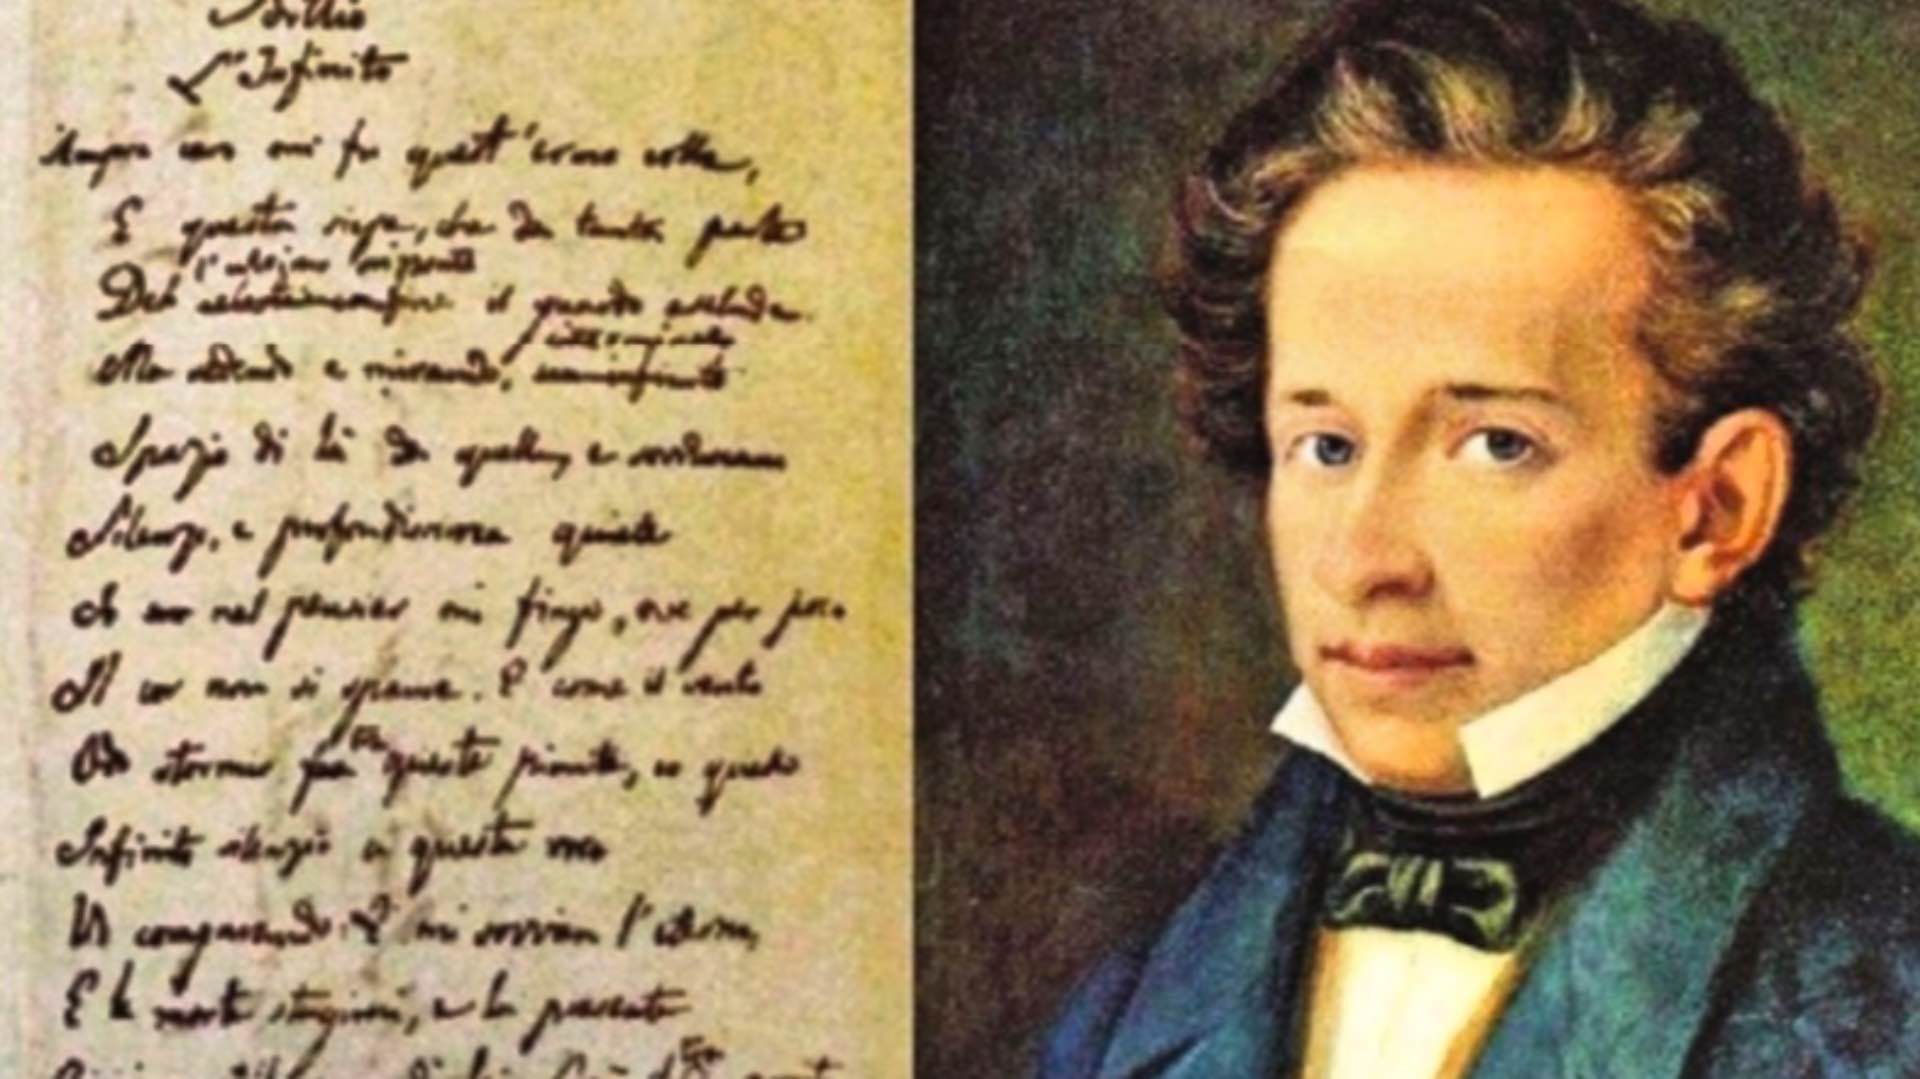 Idillio
L'Infinito
Sempre caro mi fu quest'ermo colle,
E questa siepe, che da tanta parte
l'ultimo orizzonte
Del il guardo esclude.
Ma sedendo e mirando,
Spazio di là da quella, e sovrumani
Silenzi, e profondissima quiete
Io nel pensier mi fingo, ove per poco
Il cor non si spaura. E come il vento
Odo stormir fra queste piante, io quello
Infinito silenzio a questa voce
Vo comparando: E mi sovvien l'eterno,
E le morte stagioni, e la presente